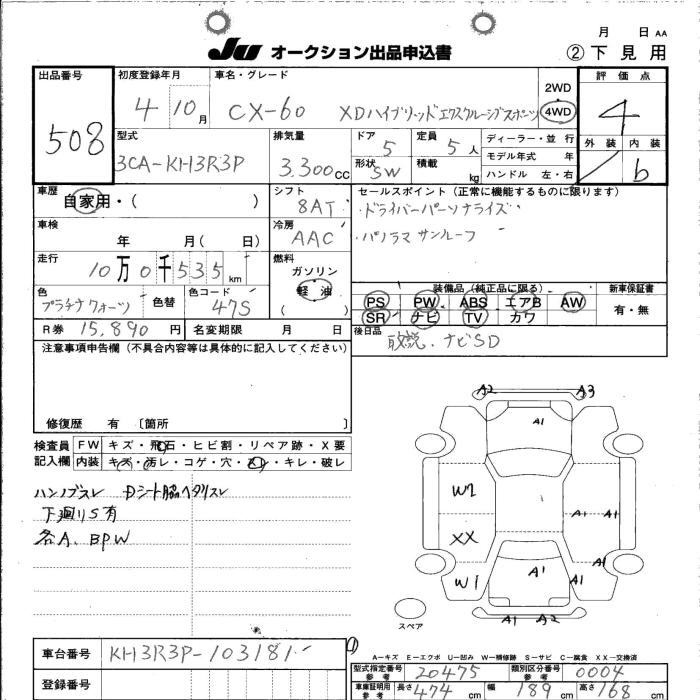 月 日 AA
JU オークション出品申込書 ②下見用
出品番号 初度登録年月 車名・グレード 評価点
508 4 10月 CX-60 XDハイブリッドエクスクルーシブスポーツ 2WD 4WD 4
型式 排気量 ドア 定員 ディーラー・並行 外装 内装
3CA-KH3R3P 3.300cc 5 5人 モデル年式 年 b
形状 SW 積載 kg ハンドル 左・右
車歴 シフト セールスポイント(正常に機能するものに限ります)
自家用・( ) 8AT ・ドライバーパーソナライズ
車検 冷房 ・パノラマサンルーフ
年 月( 日) AAC
走行 燃料
10万0千535km ガソリン
軽油
( )
色 色替 色コード 装備品(純正品に限る) 新車保証書
プラチナクォーツ 47S PS PW ABS エアB AW 有・無
SR ナビ TV カワ
R券 15,890円 名変期限 月 日 後日品
取説、ナビSD
注意事項申告欄(不具合内容等は具体的に記入してください)
修復歴 有 〔箇所 〕
検査員 FW キズ・飛石・ヒビ割・リペア跡・X要
記入欄 内装 キズ・汚レ・コゲ・穴・スレ・キレ・破レ
ハンノブスレ Dシート脇ヘタリスレ
下廻りS有
各A、BPW
A2 A3
A1
W2 1 A1 A1
XX
A1
W1 A1 A1
A1 A2
スペア
A-キズ E-エクボ U-凹み W-補修跡 S-サビ C-腐食 XX-交換済
車台番号 KH3R3P-103181
型式指定番号 参考 20475 類別区分番号 参考 0004
登録番号
車庫証明用 参考 長さ 474cm 幅 189cm 高さ 168cm